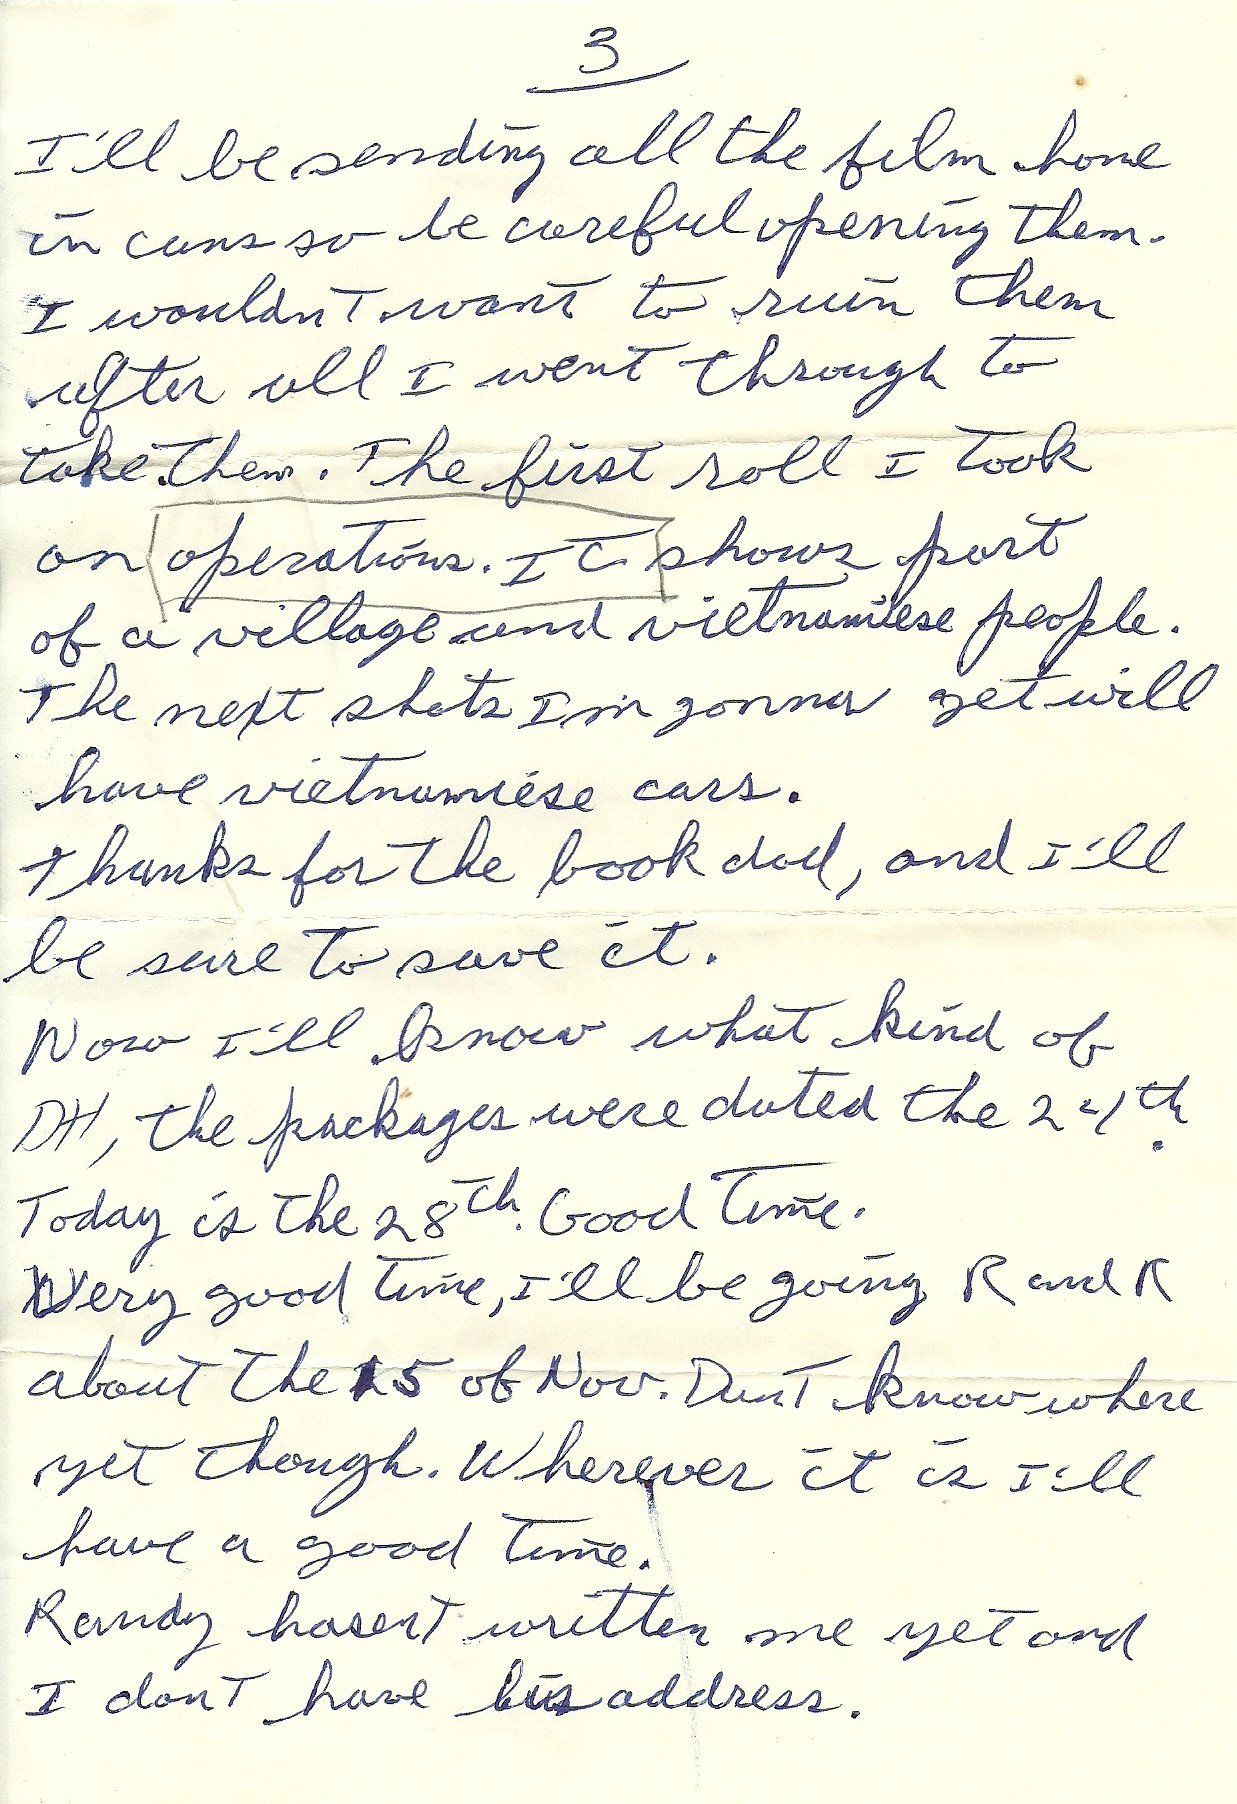 3
I'll be sending all the film home
in cans so be careful opening them.
I wouldnt want to ruin them
after all I went through to
take them. The first roll I took
on operations. It shows part
of a village and vietnamiese people.
The next shots I'm gonna get will
have vietnamiese cars.
Thanks for the book dad, and I'll
be sure to save it.
Now I'll know what kind of
DH, the packages were dated the 24th.
Today is the 28th. Good time.
Very good time, I'll be going R and R
about the 15 of Nov. Dont know where
yet though. Wherever it is I'll
have a good time.
Randy hasent written me yet and
I dont have his address.